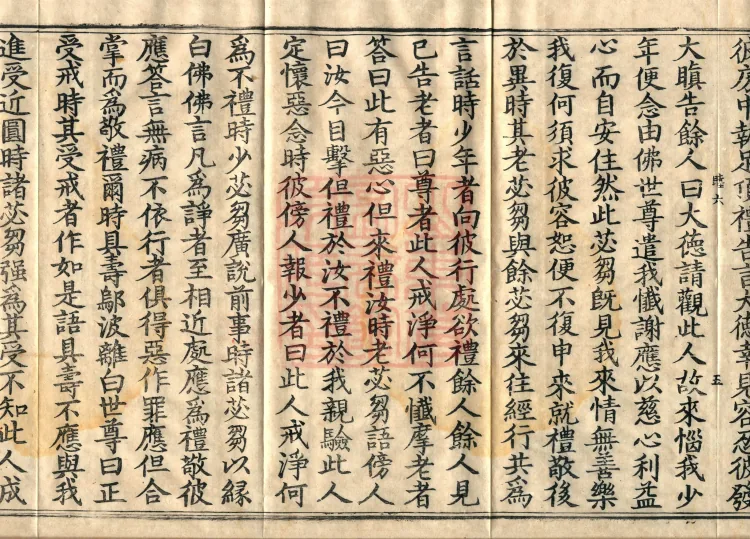 大瞋告餘人曰大德請觀此人故來惱我少
年便念由佛世尊遣我懺謝應以慈心利益
心而自安住然此苾芻旣見我來情無善樂
我復何須求彼容恕便不復申來就禮敬後
於異時其老苾芻與餘苾芻來往經行共爲
言話時少年者向彼行處欲禮餘人餘人見
已告老者曰尊者此人戒淨何不懺摩老者
答曰此有惡心但來禮汝時老苾芻語傍人
曰汝今目擊但禮於汝不禮於我親驗此人
定懷惡念時彼傍人報少者曰此人戒淨何
爲不禮時少苾芻廣說前事時諸苾芻以縁
白佛佛言凡爲諍者至相近處應爲禮敬彼
應荅言無病不依行者俱得惡作罪應但合
掌而爲敬禮爾時具壽鄔波離白世尊曰正
受戒時其受戒者作如是語具壽不應與我
進受近圓時諸苾芻强爲其受不知此人成